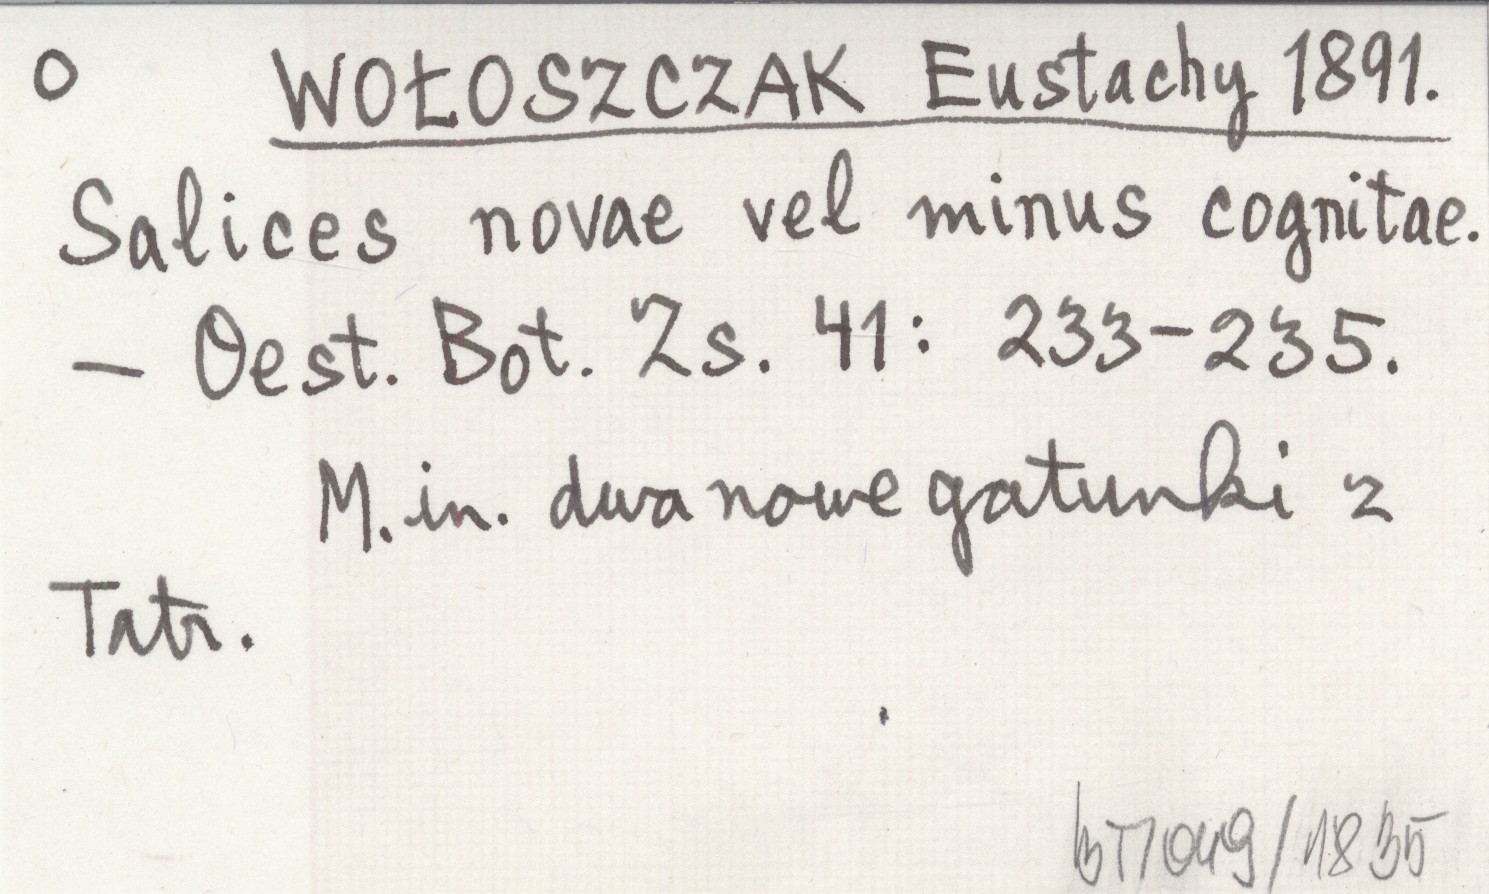 O WOŁOSZCZAK Eustachy 1891.
Salices novae vel minus cognitae.
– Oest. Bot. Zs. 41: 233-235.
M. in. dwa nowe gatunki z
Tatr.